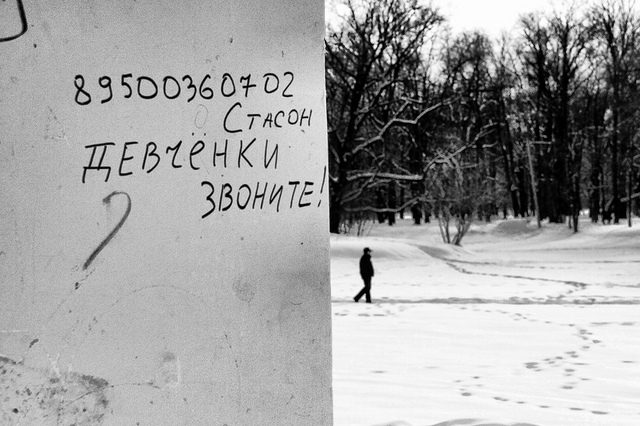 89500360702
Стасон
Девчёнки
звоните!
?